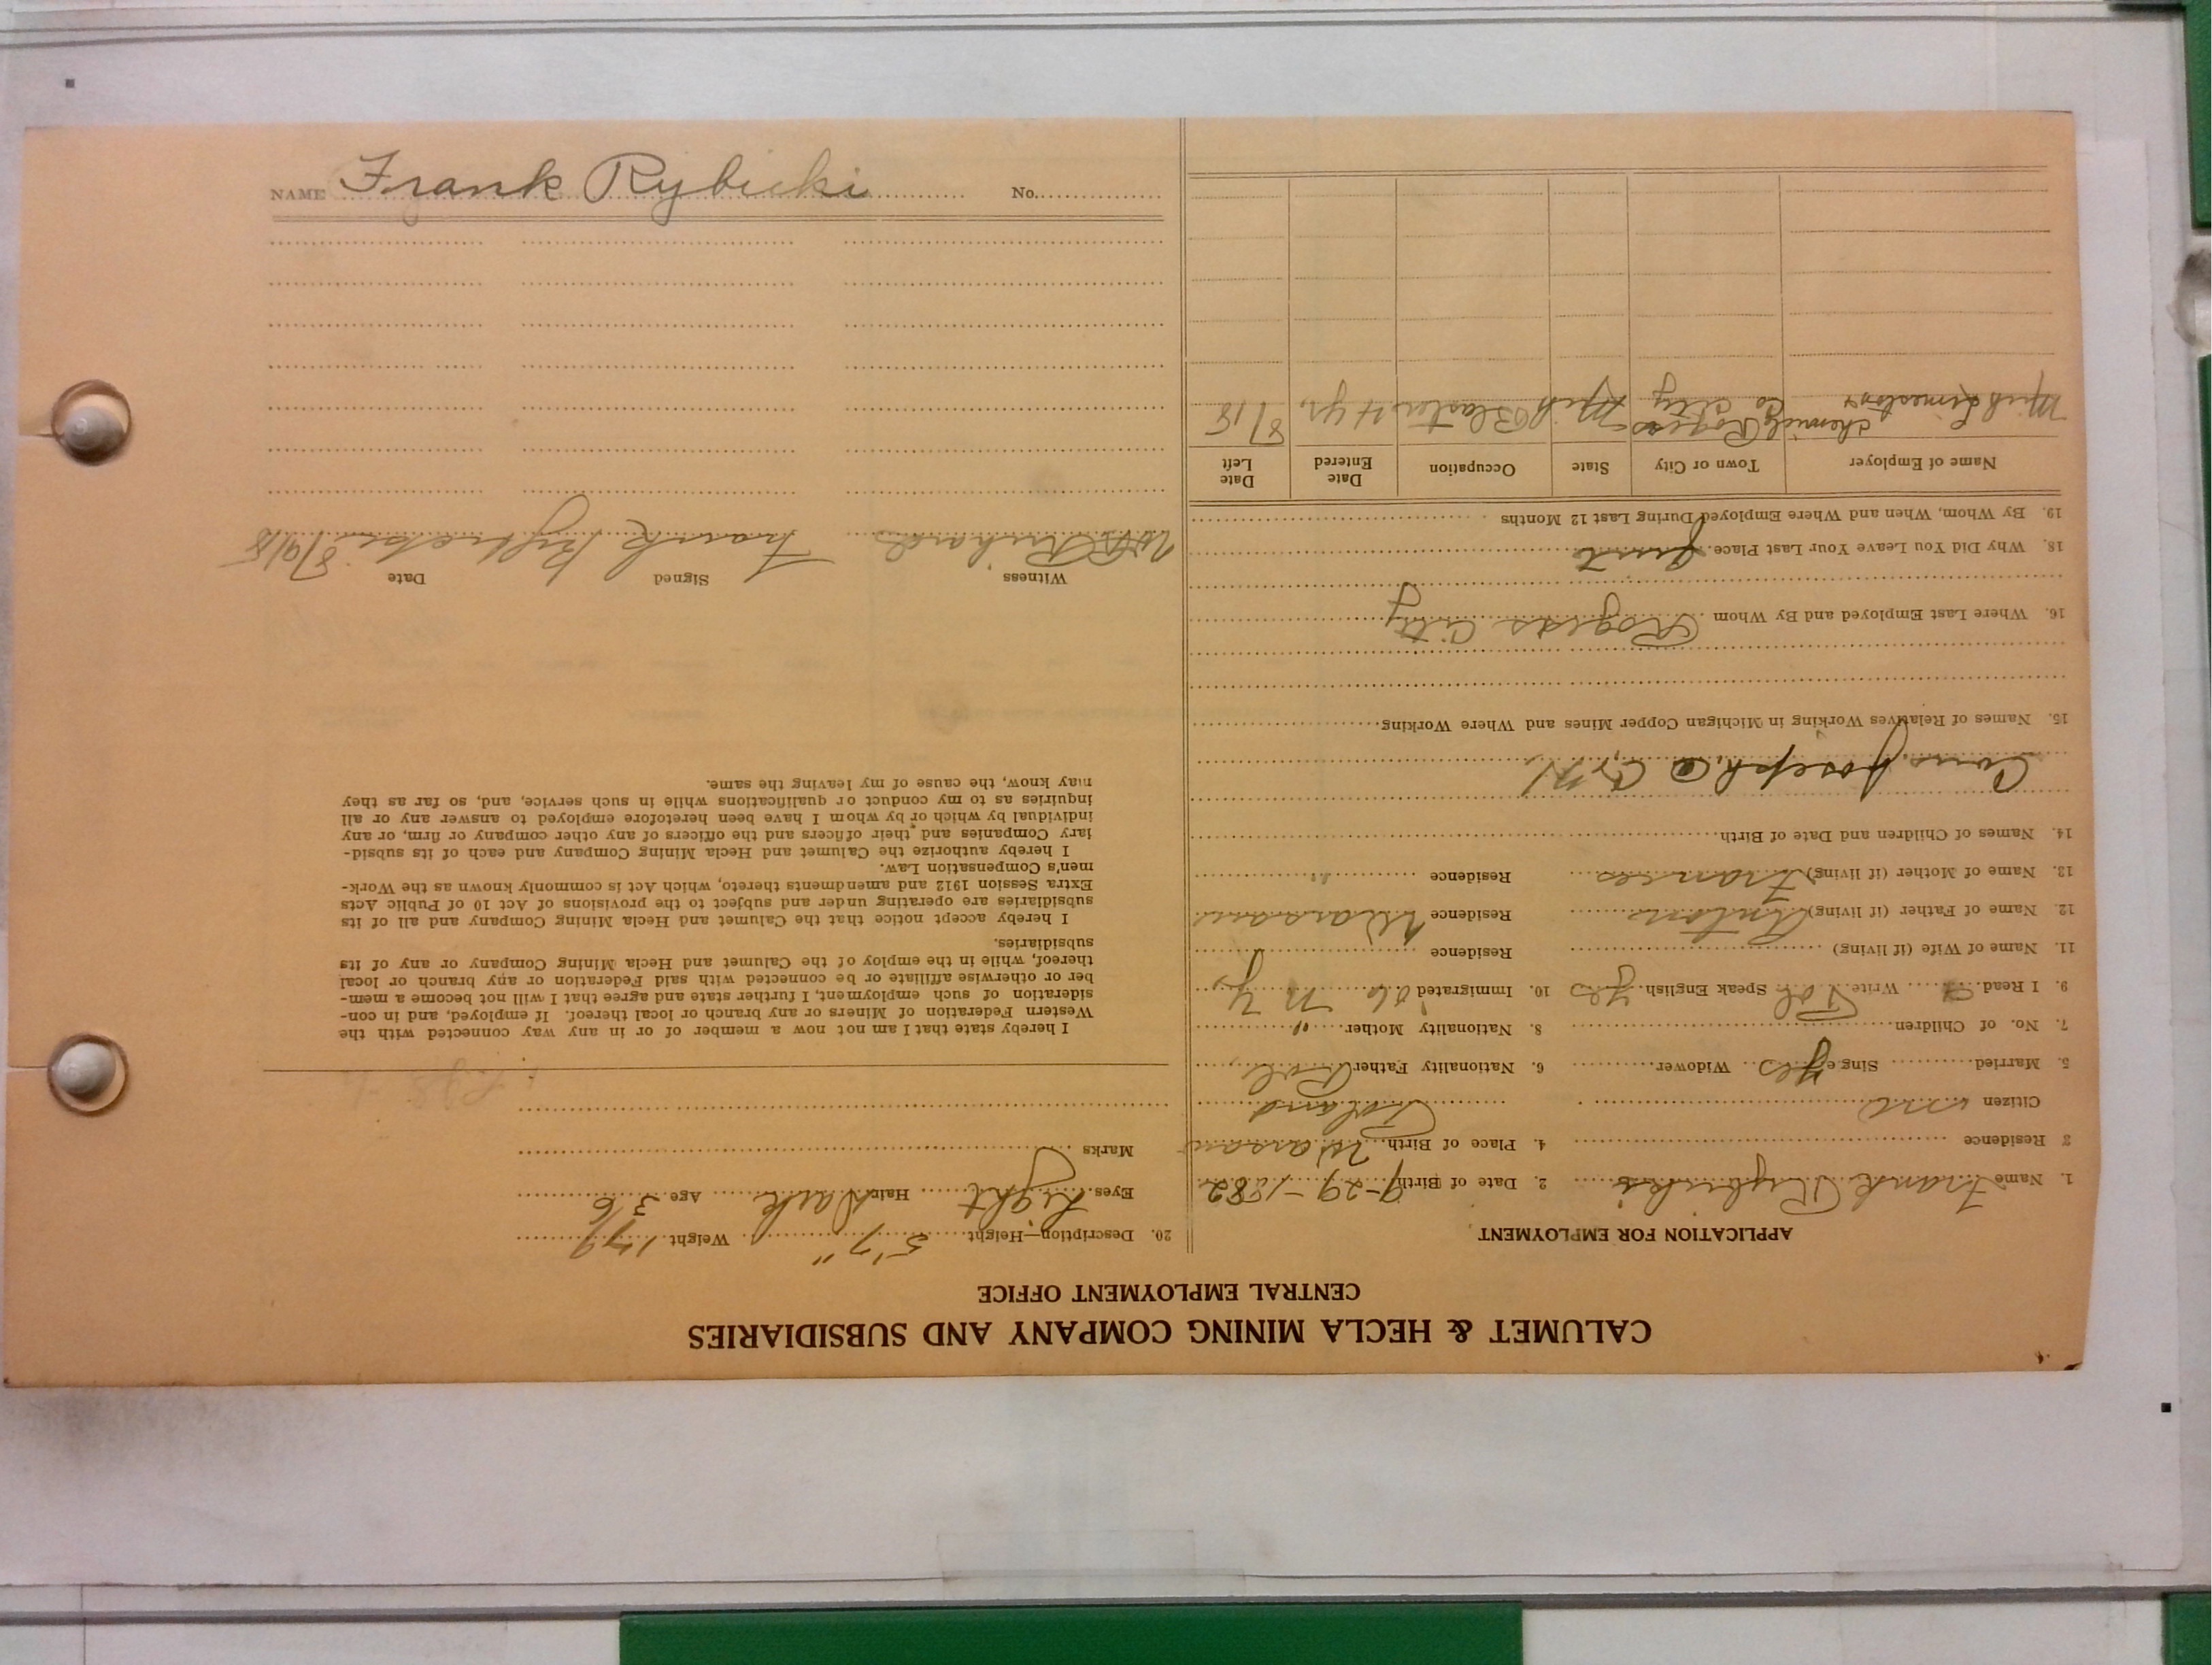 CALUMET & HECLA MINING COMPANY AND SUBSIDIARIES
CENTRAL EMPLOYMENT OFFICE
APPLICATION FOR EMPLOYMENT
1. Name Frank Rybicki 2. Date of Birth 9-29-1882
3 Residence 4. Place of Birth Warsaw
Citizen no Poland
5. Married Single yes Widower 6. Nationality Father Pol
7. No. of Children 8. Nationality Mother "
9. I Read Write Pol Speak English yes 10. Immigrated 06 N Y
11. Name of Wife (if living) Residence
12. Name of Father (if living) Anton Residence Warsaw
13. Name of Mother (if living) Frances Residence "
14. Names of Children and Date of Birth
Cous. Joseph @
15. Names of Relatives Working in Michigan Copper Mines and Where Working
16. Where Last Employed and By Whom Rogers City
18. Why Did You Leave Your Last Place quit
19. By Whom, When and Where Employed During Last 12 Months
Name of Employer Town or City State Occupation Date Entered Date Left
Mich Limestone Chemical Co Rogers City Mich Blaster 4 yr. 8/18
20. Description—Height 5'7" Weight 179
Eyes Light Hair Dark Age 36
Marks
I hereby state that I am not now a member of or in any way connected with the
Western Federation of Miners or any branch or local thereof. If employed, and in con-
sideration of such employment, I further state and agree that I will not become a mem-
ber or otherwise affiliate or be connected with said Federation or any branch or local
thereof, while in the employ of the Calumet and Hecla Mining Company or any of its
subsidiaries.
I hereby accept notice that the Calumet and Hecla Mining Company and all of its
subsidiaries are operating under and subject to the provisions of Act 10 of Public Acts
Extra Session 1912 and amendments thereto, which Act is commonly known as the Work-
men's Compensation Law.
I hereby authorize the Calumet and Hecla Mining Company and each of its subsid-
iary Companies and their officers and the officers of any other company or firm, or any
individual by which or by whom I have been heretofore employed to answer any or all
inquiries as to my conduct or qualifications while in such service, and, so far as they
may know, the cause of my leaving the same.
Witness Signed Date
Richard Frank Rybicki 8/9/18
NAME Frank Rybicki No.